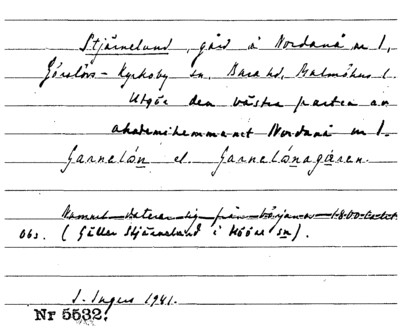 Stjärnelund, gård å Nordanå nr 1,
Görslövs - Kyrkoby sn, Bara hd, Malmöhus l.
Utgör den västra parten av
akademihemmanet Nordanå nr 1.
Garnelón el. Garnelónagåren.
Namnet daterar sig från början av 1800-talet.
Obs. (Gäller Stjärnelund i Höör sn).
I. Ingers 1941.
Nr 5532.